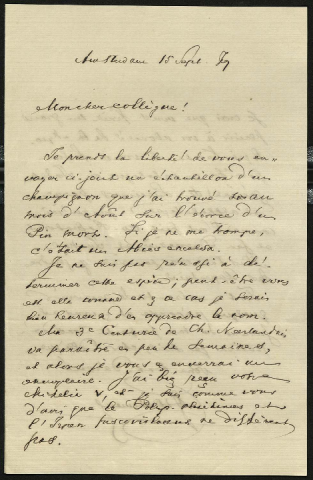 Amsterdam 15 Sept. 79
Mon cher collègue!
Je prends la liberté de vous en-
voyer ci-joint un échantillon d'un
champignon que j'ai trouvé au
mois d'Août sur l'écorce d'un
Pin mort. Si je ne me trompe,
c'était un Abies excelsa.
Je ne suis pas réussi à dé-
terminer cette espèce; peut-être vous
est elle connue et en ce cas je serais
bien heureux d'en apprendre le nom.
Ma 3e Centurie de Ch. Neerlandais
va paraître en peu de semaines,
et alors je vous enverrai un
exemplaire. J'ai bien reçu votre
Michelia V, et je suis comme vous
d'avis que le Polyp. et
l'Irpex fuscoviolaceus ne diffèrent
pas.